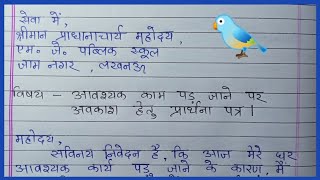 सेवा में,
श्रीमान प्राधानाचार्य महोदय,
एम. जे. पब्लिक स्कूल
जाम नगर, लखनऊ
विषय - आवश्यक काम पड़ जाने पर
अवकाश हेतु प्रार्थना पत्र।
महोदय,
सविनय निवेदन है, कि आज मेरे घर
आवश्यक कार्य पड़ जाने के कारण, मैं